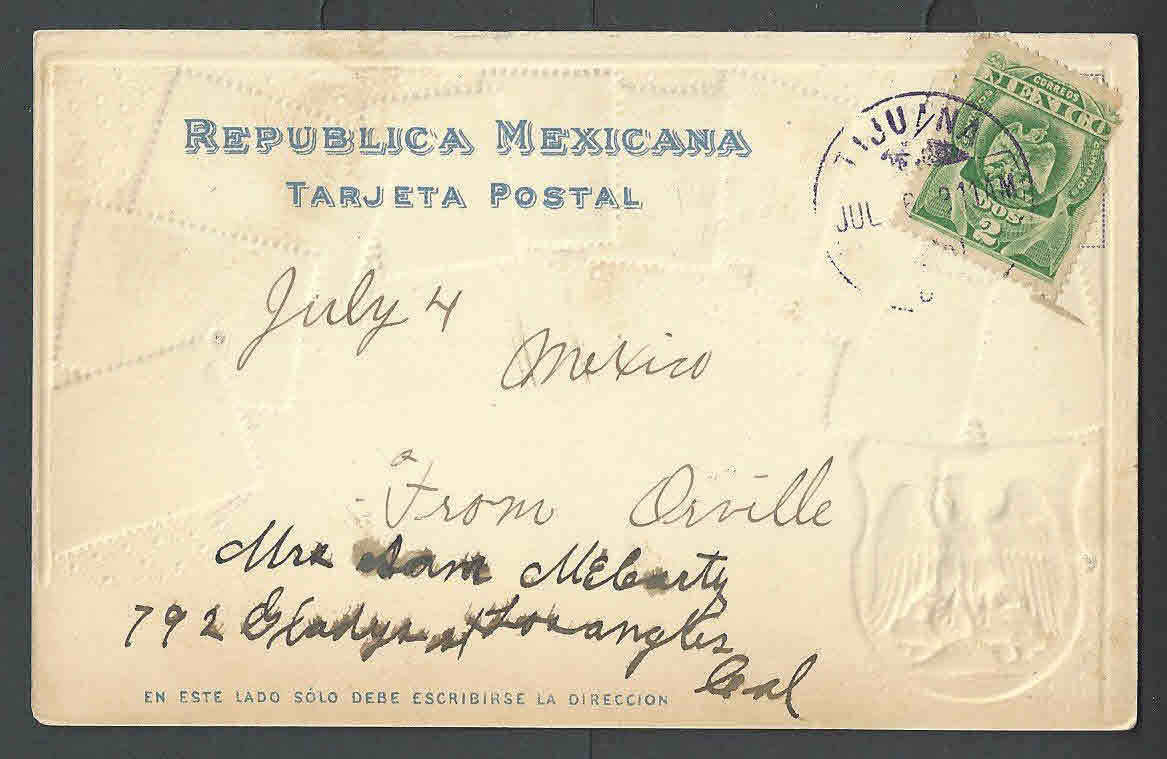 REPUBLICA MEXICANA
TARJETA POSTAL
CORREOS
MEXICO
DOS
2
TIJUANA
JUL
July 4
Mexico
From Orville
Mrs Sam McCarty
792 Gladys st Los angles
Cal
EN ESTE LADO SÓLO DEBE ESCRIBIRSE LA DIRECCION